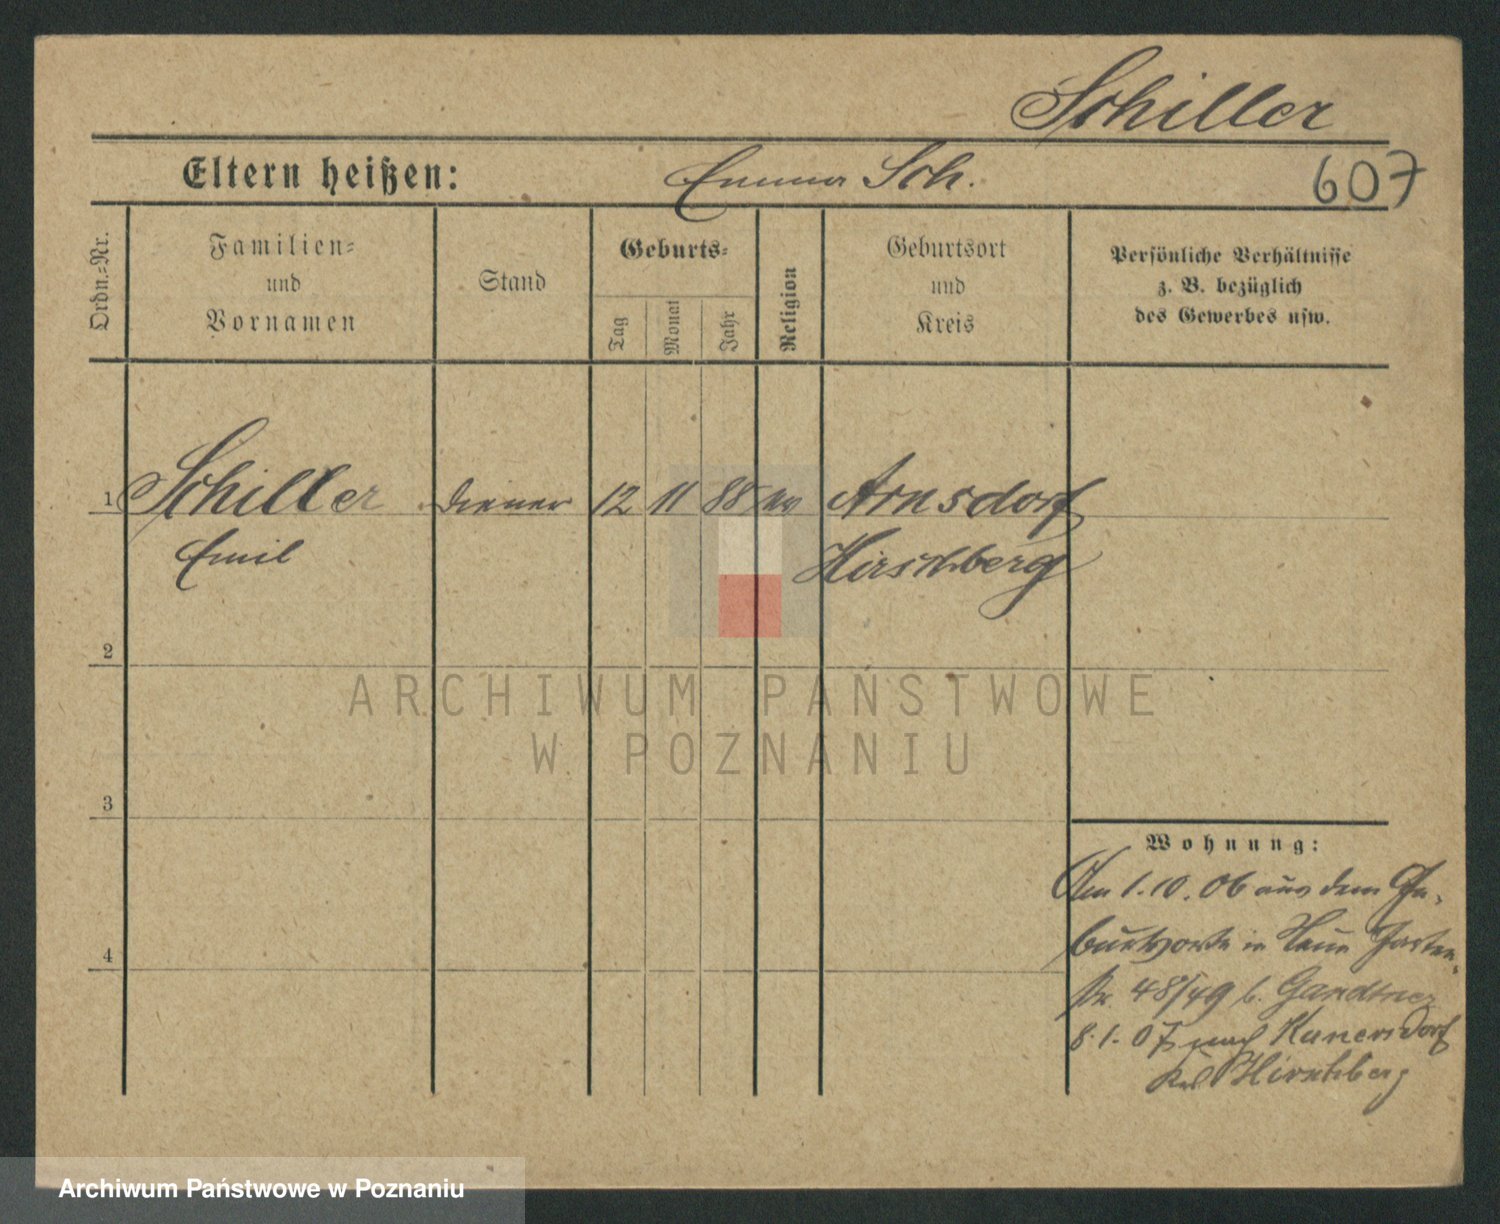 Schiller
Eltern heißen: Emma Sch. 607
Ordn.=Nr.
Familien=
und
Vornamen
Stand
Geburts=
Tag
Monat
Jahr
Religion
Geburtsort
und
Kreis
Persönliche Verhältnisse
z. B. bezüglich
des Gewerbes usw.
1 Schiller Diener 12 11 88 ev Arnsdorf
Emil Hirschberg
2
3
4
Wohnung:
Am 1.10.06 aus dem Ge-
burtsorte in Neue Garten-
str 48/49 b. Gandtner
8.1.07 nach Kunersdorf
Krs Hirschberg
ARCHIWUM PAŃSTWOWE
W POZNANIU
Archiwum Państwowe w Poznaniu